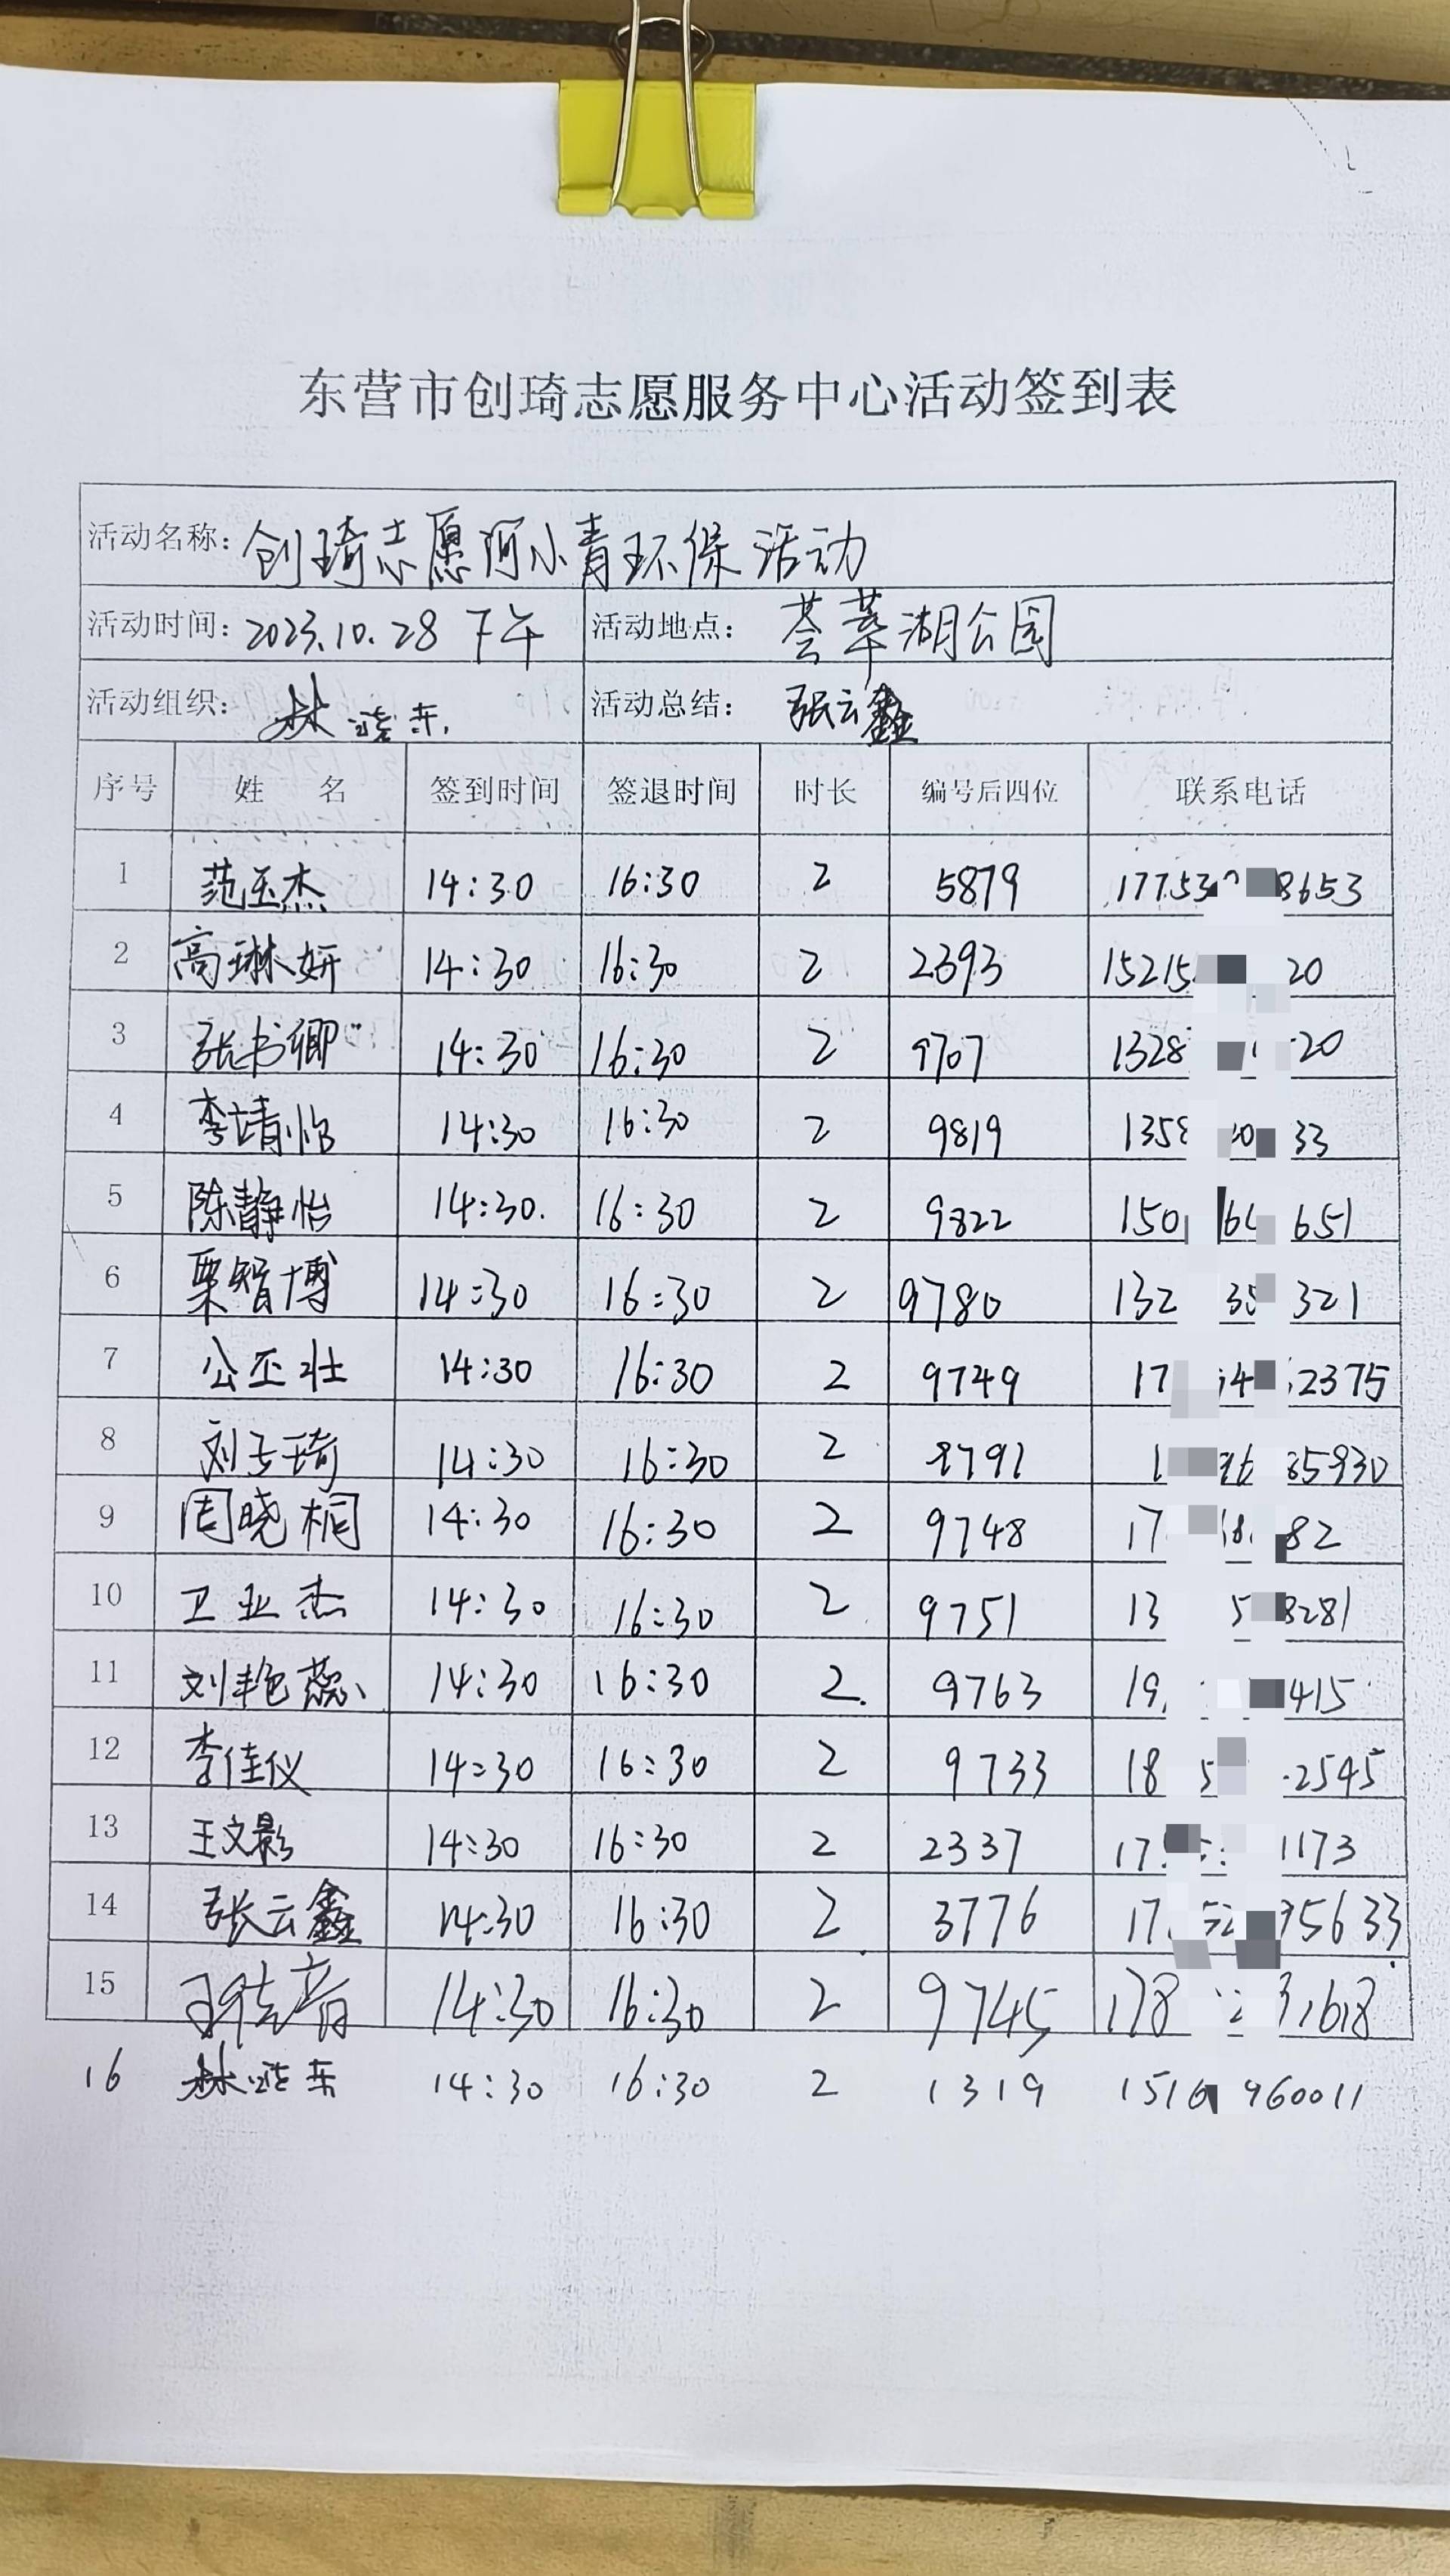 东营市创琦志愿服务中心活动签到表
活动名称: 创琦志愿河小青环保活动
活动时间: 2023.10.28 下午 活动地点: 荟萃湖公园
活动组织: 林晓东 活动总结: 张云鑫
序号 姓 名 签到时间 签退时间 时长 编号后四位 联系电话
1 范玉杰 14:30 16:30 2 5879 17753 8653
2 高琳妍 14:30 16:30 2 2393 15215 20
3 张书卿 14:30 16:30 2 9707 1328 20
4 李靖怡 14:30 16:30 2 9819 135 33
5 陈静怡 14:30. 16:30 2 9822 150 651
6 栗智博 14:30 16:30 2 9780 132 321
7 公丕壮 14:30 16:30 2 9749 17 2375
8 刘子琦 14:30 16:30 2 8791 1 35930
9 周晓桐 14:30 16:30 2 9748 17 82
10 卫亚杰 14:30 16:30 2 9751 13 5 8281
11 刘艳蕊 14:30 16:30 2. 9763 19 415
12 李佳仪 14:30 16:30 2 9733 18 5 2545
13 王文影 14:30 16:30 2 2337 17 1173
14 张云鑫 14:30 16:30 2 3776 17 52 95633
15 14:30 16:30 2 9745 178 1618
16 林晓东 14:30 16:30 2 1319 1516 960011